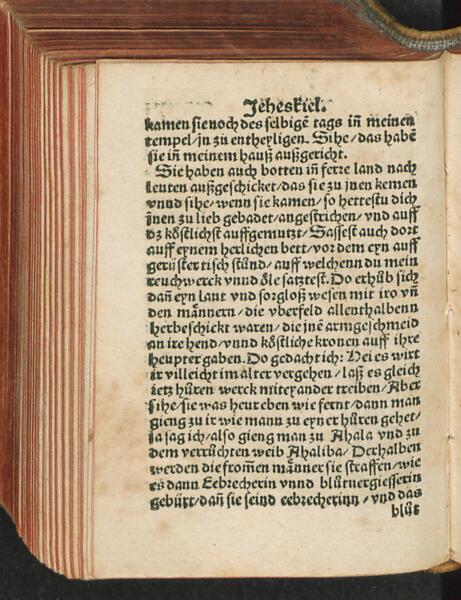 Jeheskiel.
kamen sie noch des selbigē tags iñ meinen
tempel/ jn zu entheyligen. Sihe/ das habē
sie iñ meinem hauß außgericht.
Sie haben auch botten iñ ferre land nach
leuten außgeschicket/ das sie zu jnen kemen
vnnd sihe/ wenn sie kamen/ so hettestu dich
jnen zu lieb gebadet/ angestrichen/ vnd auff
dz köstlichst auffgemutzt/ Sassest auch dort
auff eynem herlichen bett/ vor dem eyn auff
gerüster tisch stůnd/ auff welchenn du mein
reuchwerck vnnd öle satztest. Do erhůb sich
dañ eyn laut vnd sorgloß wesen mit jro vñ
den männern/ die vberfeld allenthalbenn
herbeschickt waren/ die jnē armgeschmeid
an ire hend/ vnnd köstliche kronen auff ihre
heupter gaben. Do gedacht ich: Nei es wirt
ir villeicht im alter vergehen/ laß es gleich
ietz hůren werck miteyander treiben/ Aber
sihe/ sie was heur eben wie fernt/ dann man
gieng zu ir wie mann zu eyner hůren gehet/
ja sag ich/ also gieng man zu Ahala vnd zu
dem verrůchten weib Ahaliba/ Derhalben
werden die from̄en männer sie straffen/ wie
es dann Eebrecherin vnnd blůtuergiesserin
gebürt/ dañ sie seind eebrecherinn/ vnd das
blůt